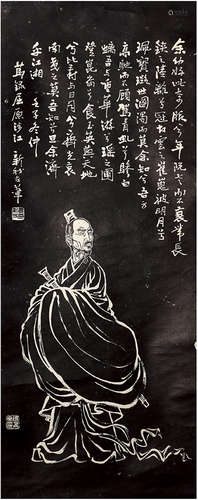 余幼好此奇服兮年既老而不衰帶長
鋏之陸離兮冠切雲之崔嵬被明月兮
珮寶璐世溷濁而莫余知兮吾方
高馳而不顧駕青虬兮驂白
螭吾與重華遊兮瑤之圃
登崑崙兮食玉英與天地
兮比壽與日月兮齊光哀
南夷之莫吾知兮旦余濟
乎江湘 壬子冬仲
屈原涉江